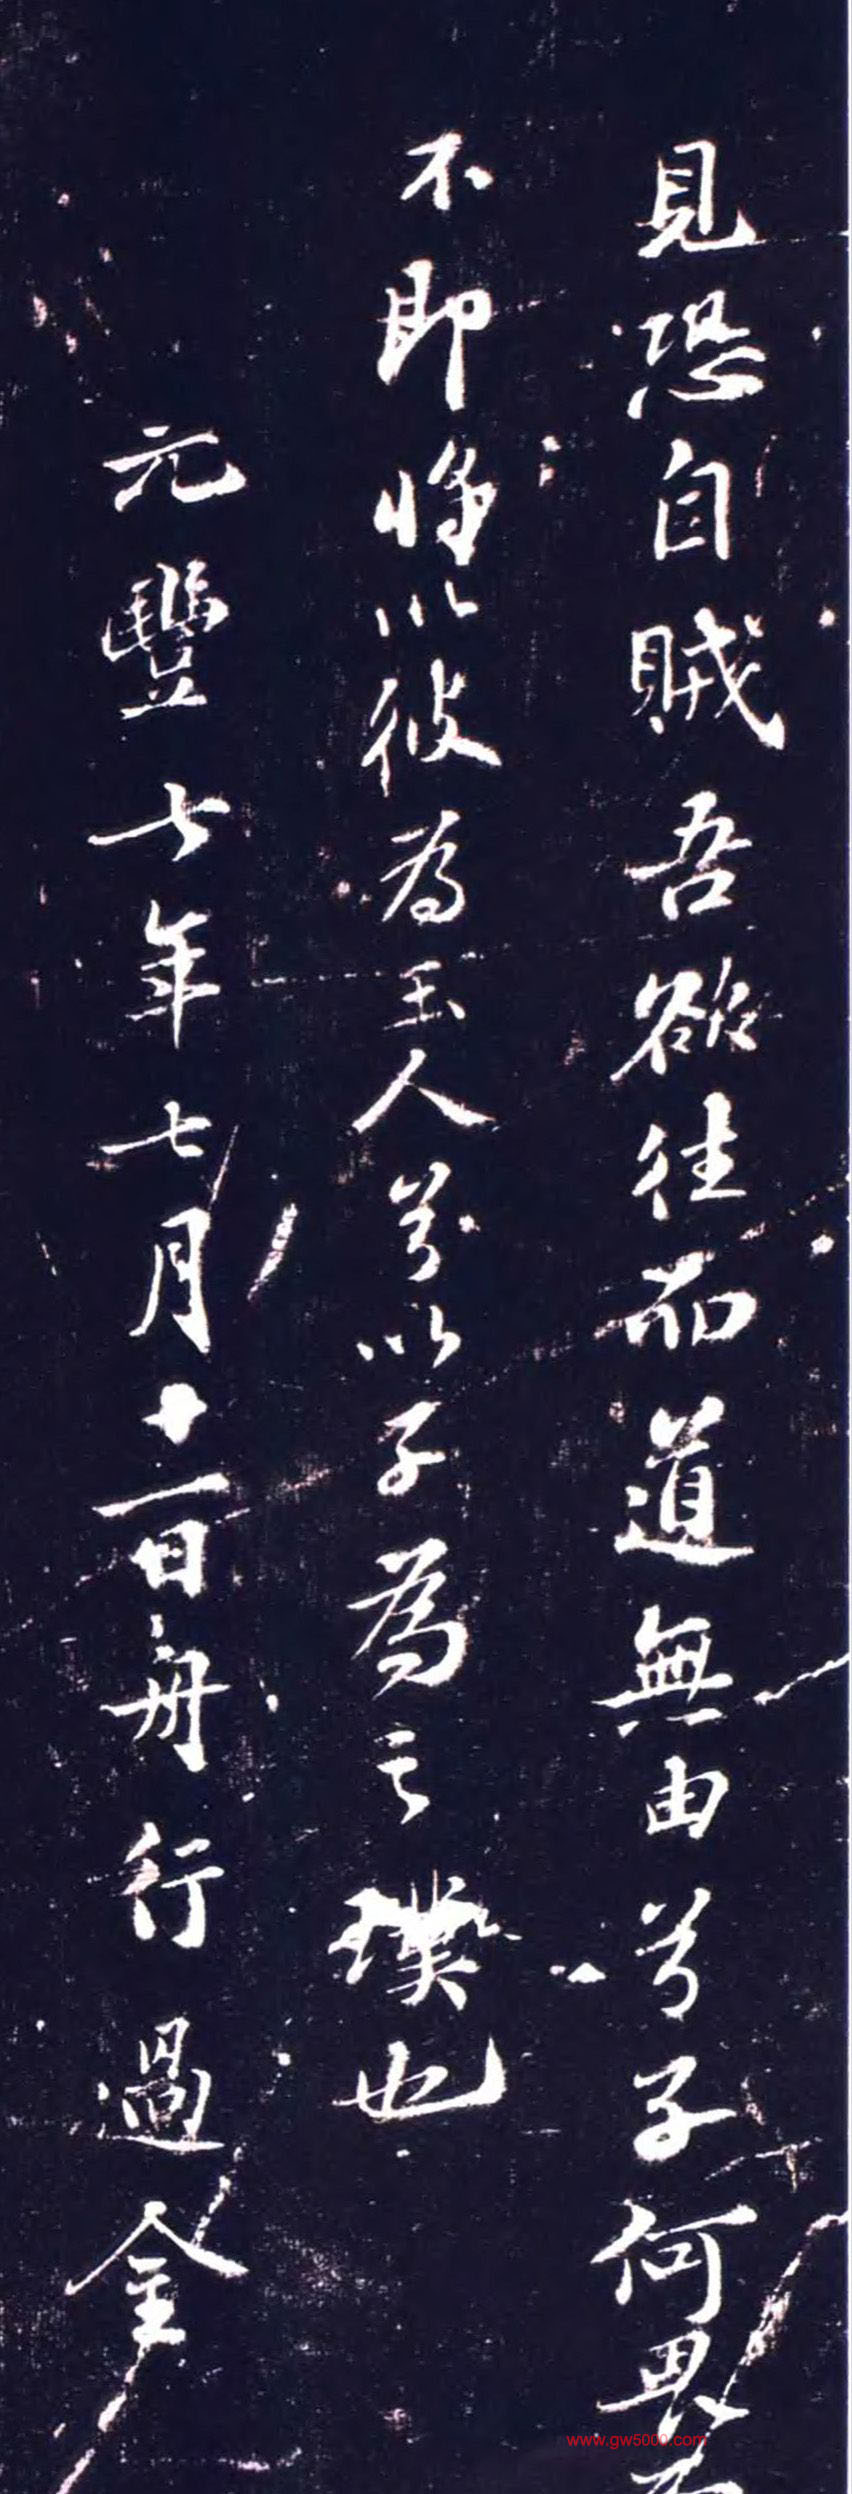 見恐自賊吾欲往而道無由兮子何畏而
不即將以彼為玉人兮以子為之璞也
元豐七年七月十一日舟行過金
www.gw5000.com